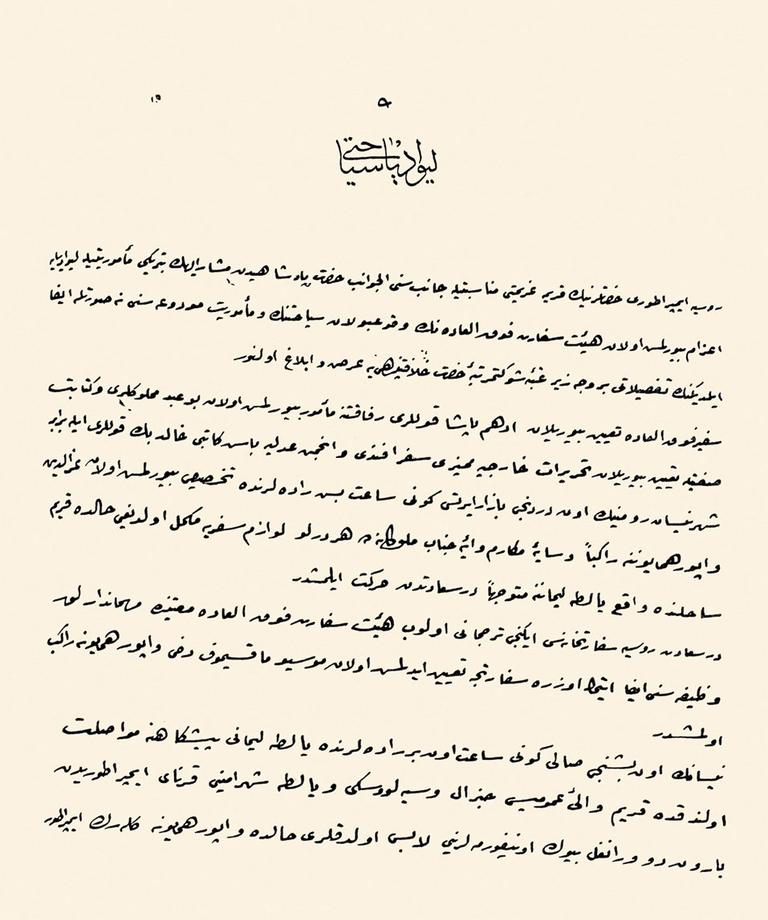 ٥
ليواديا سياحتى
روسيه ايمپراطورى حضرتلرينك قريمه عزيمتى مناسبتيله جانب سنى الجوانب حضرت پادشاهيدن مشار اليهك تبريكى مأموريتيله ليواديايه
اعزام بيورلمش اولان هيئت سفارت فوق العاده نك وقوعبولان سياحتنك و مأموريت مودوعه سنى نه صورتله ايفا
ايلديكنك تفصيلاتى بروجه زير عتبه شوكتمرتبه حضرت خلافتپناهى يه عرض و ابلاغ اولنور
سفير فوق العاده تعيين بيوريلان ادهم پاشا قوللرى رفاقتنه مأمور بيورلمش اولان بو عبد مملوكلرى و كتابت
صفتيله تعيين بيوريلان تحريرات خارجيه مميزى سفر افندى و انجمن عدليه باش كاتبى خالد بك قوللرى ايله برابر
شهر نيسان رومينك اون دردنجى بازارايرتسى كونى ساعت بش راده لرنده تخصيص بيورلمش اولان عزالدين
واپور همايوننه راكباً و سايۀ مكارم وايۀ جناب ملوكانه ده هر درلو لوازم سفريه مكمل اولديغى حالده قريم
ساحلنده واقع يالطه ليماننه متوجهاً درسعادتدن حركت ايلمشدر
درسعادت روسيه سفارتخانه سى ايكنجى ترجمانى اولوب هيئت سفارت فوق العاده معيتنده مهماندارلق
وظيفه سنى ايفا ايتمك اوزره سفارتجه تعيين ايدلمش اولان موسيو ماقسيموف دخى واپور همايونه راكب
اولمشدر
نيسانك اون بشنجى صالى كونى ساعت اون بر راده لرنده يالطه ليمانى پيشكاهنه مواصلت
اولندقده قريم والئ عموميسى جنرال وسيه لووسكى و يالطه شهرامينى قرناى ايمپراطوريدن
بارون دو ورانغل بيوك اونيفورمه لرينى لابس اولدقلرى حالده واپور همايونه كله رك ايمپراطور